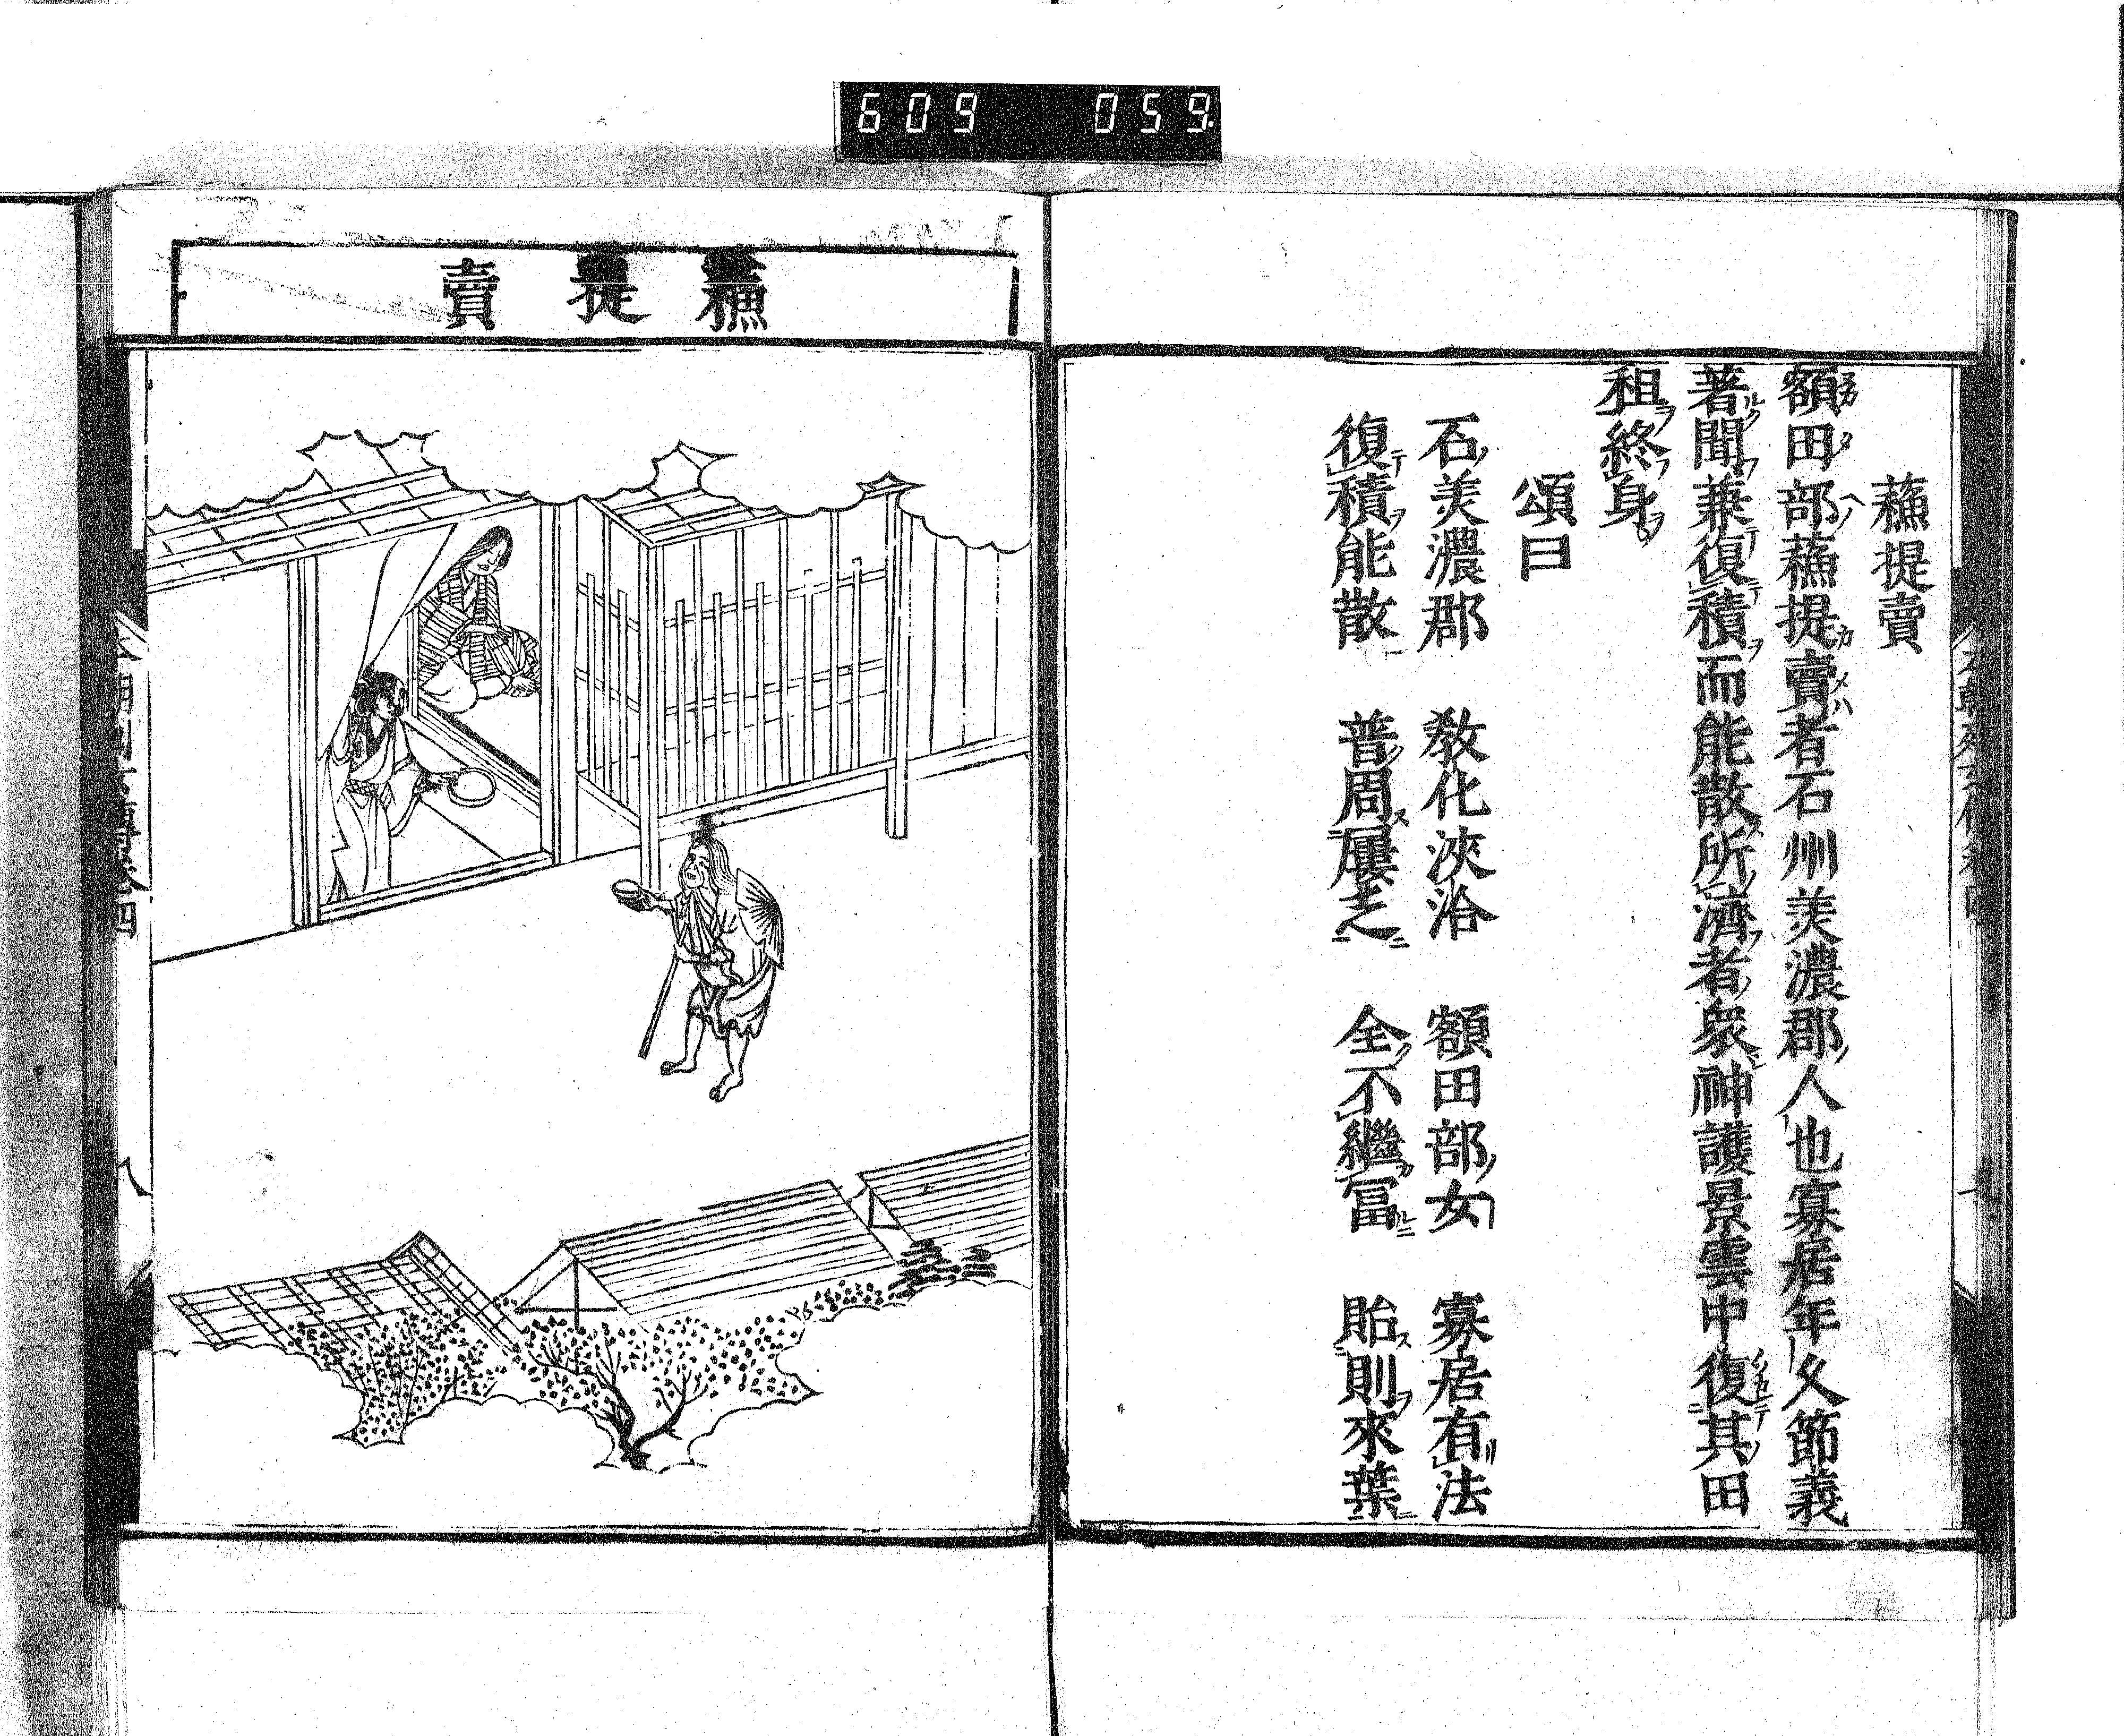 609 059
蘓提賣
額田部蘓提賣者石州美濃郡人也寡居年久節義
著聞兼復積而能散所濟者衆神護景雲中復其田
租終身
頌曰
石美濃郡 教化浹洽 額田部女 寡居有法
復積能散 普周屢之 全不繼冨 貽則來葉
蘓提賣
八